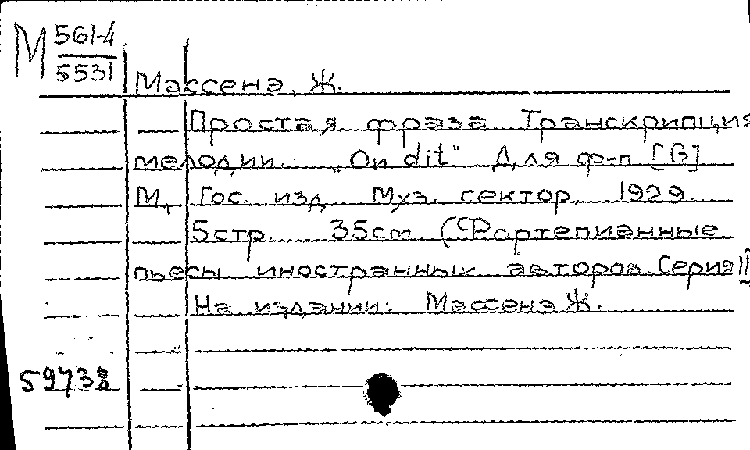 М 561-4
5531
Массенэ, Ж.
Простая фраза Транскрипция
мелодии „On dit" Для ф-п [В]
М., Гос. изд. Муз. сектор, 1929
5стр. 35см. (Фортепианные
пьесы иностранных авторов Серия III
На издании: Массенэ Ж.
59738